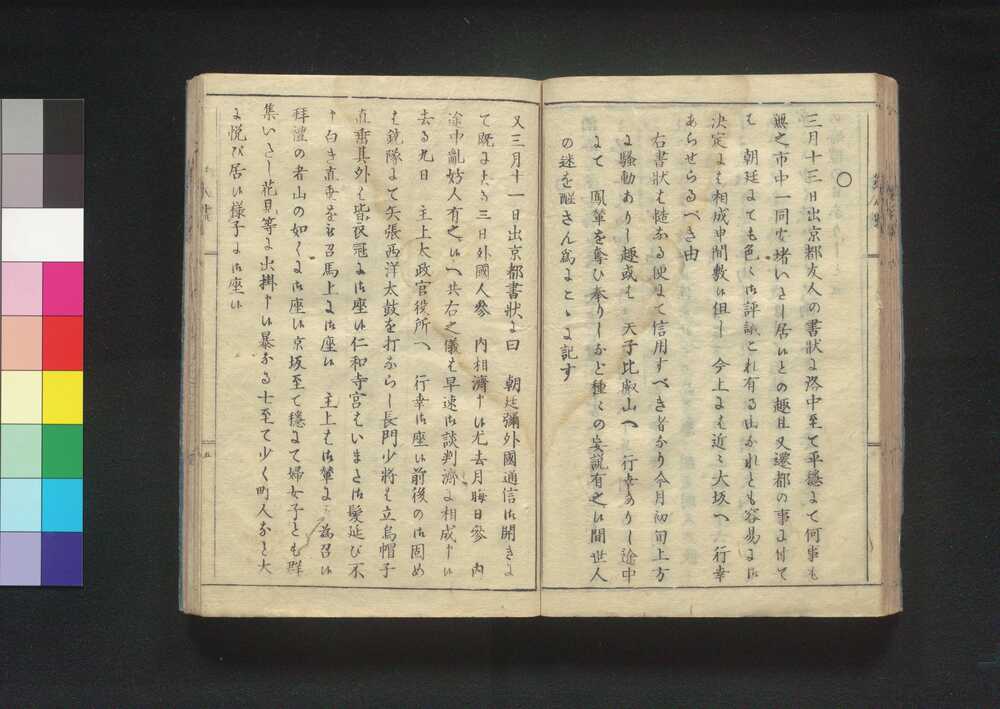 ○
三月十三日出京都友人の書状に洛中至て平穏にて何事も
無之市中一同安堵いたし居候との趣且又遷都の事に付て
も　朝廷にても色々御評議これ有る由なれとも容易に御
決定にも相成申間敷候但し　今上にも近々大坂へ　行幸
あらせらるべき由
右書状も慥なる便にて信用すべき者なり今月初旬上方
に騒動ありし趣或は　天子比叡山へ　行幸ありし途中
にて　鳳輦を奪ひ奉りしなど種々の妄説有之候間世人
の迷を醒さん為にとゝに記す
又三月十一日出京都書状に曰　朝廷彌外國通信御開きに
て既に去る三日外國人参　内相濟申候尤去月晦日参　内
途中亂妨人有之候へ共右之儀も早速御談判濟に相成申候
去る九日　主上太政官役所へ　行幸御座候前後の御固め
は銃隊にて矢張西洋太鼓を打ならし長門少将は立烏帽子
直垂其外は皆衣冠に御座候仁和寺宮もいまだ御髪延び不
申白き直垂を召馬上に御座候　主上も御輦に為召候
拝禮の者山の如くに御座候京坂至て穏にて婦女子とも群
集いたし花見等に出掛申候暴なる士至て少く町人など大
に悦び居候様子に御座候